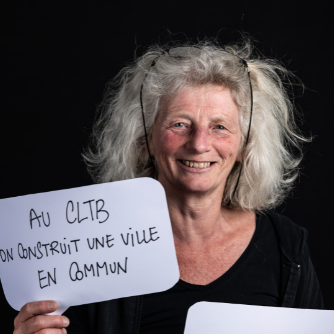 AU CLTB
ON CONSTRUIT UNE VILLE
EN COMMUN